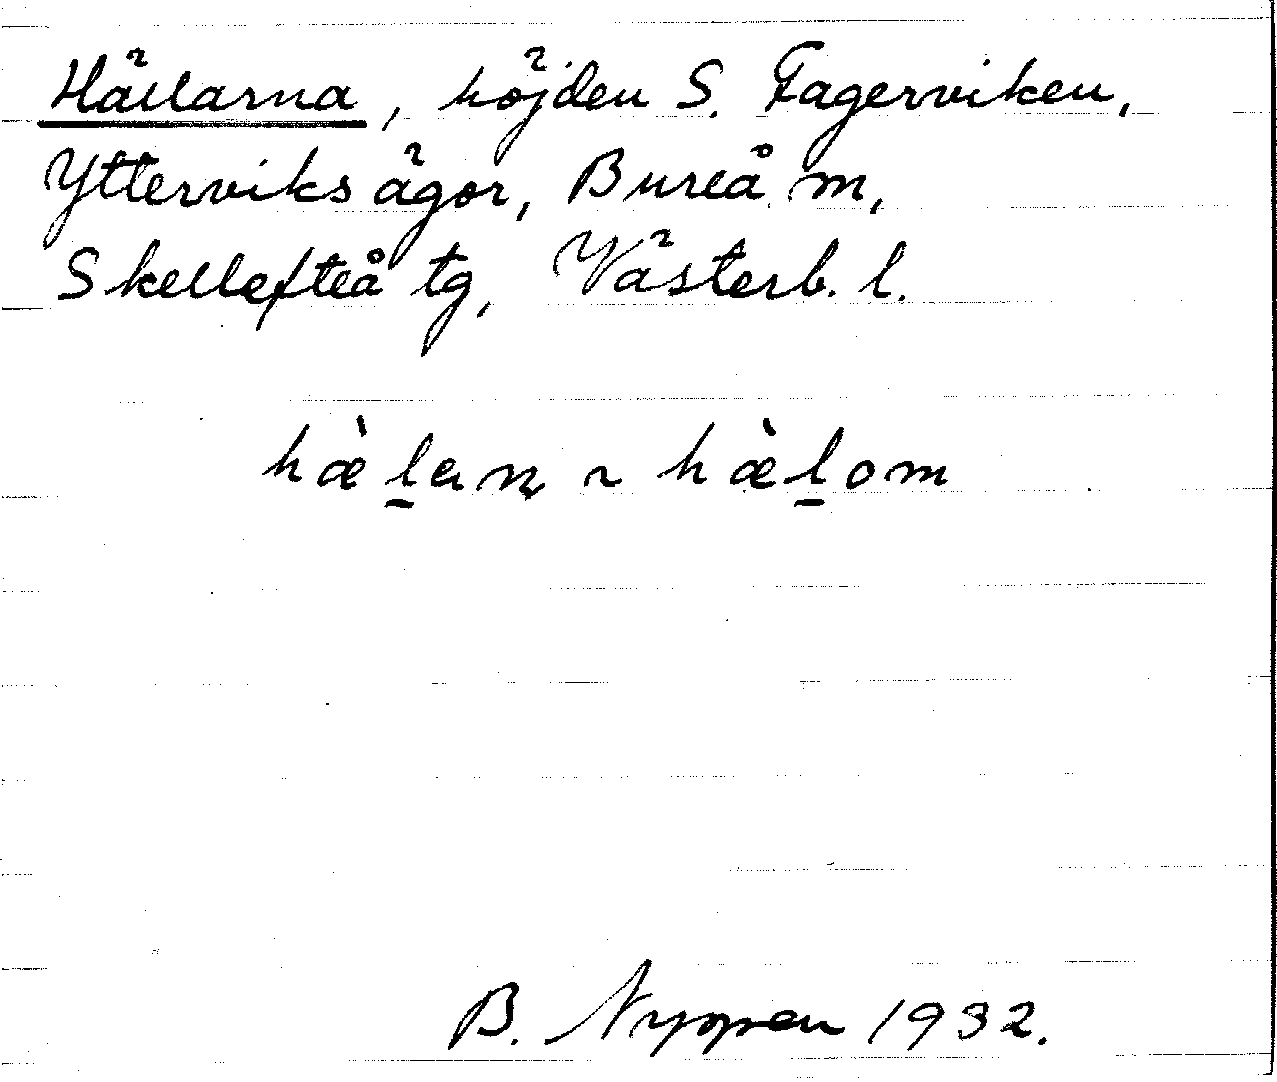 Hällarna, höjden S. Fagerviken,
Ytterviks ägor, Bureå m,
Skellefteå tg, Västerb. l.
hæ̀l̲an ~ hæ̀l̲om
B. Nygren 1932.